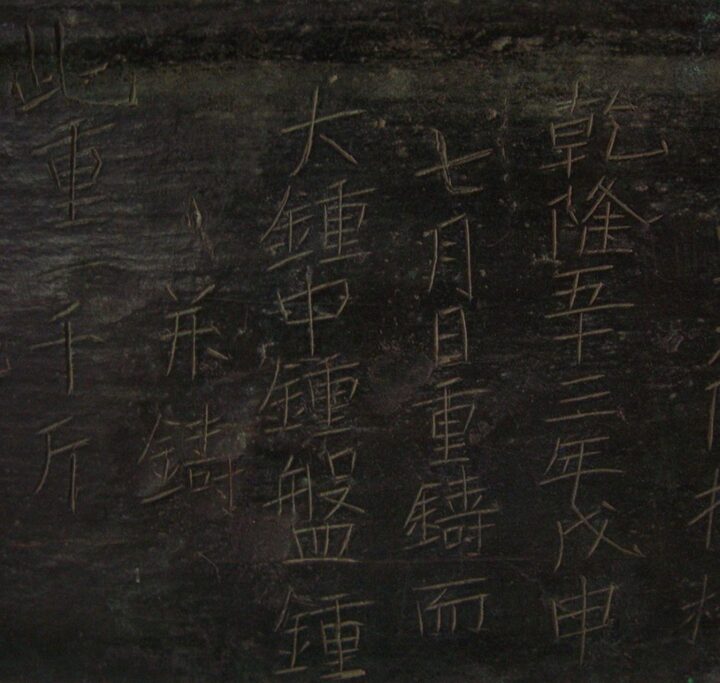 乾隆五十三年戊申
七月日重鑄而
大鍾中鍾盤鍾
并鑄
此重千斤